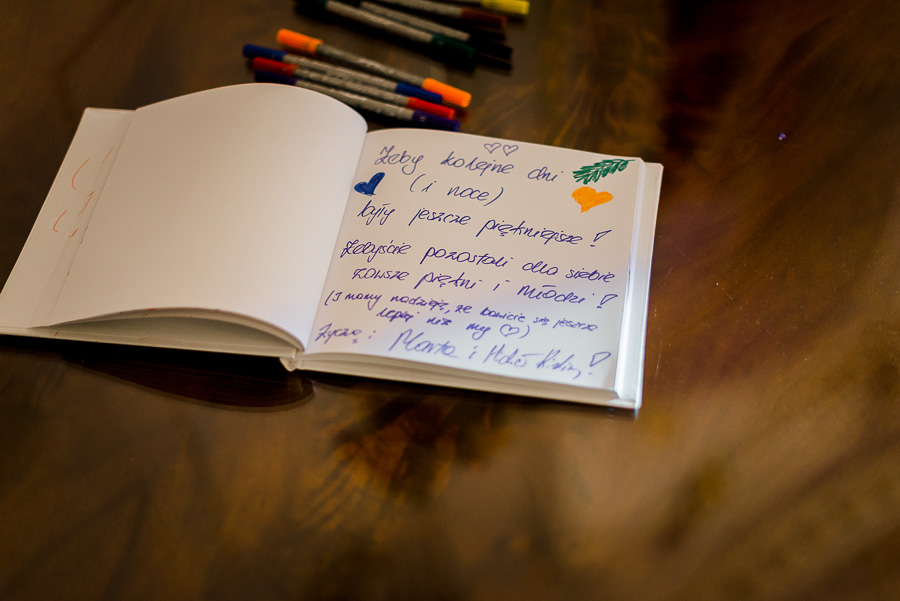 Żeby kolejne dni
(i noce)
były jeszcze piękniejsze!
Żebyście pozostali dla siebie
zawsze piękni i młodzi!
(I mamy nadzieję, że bawicie się jeszcze
lepiej niż my ♡)
Życzą: Marta i